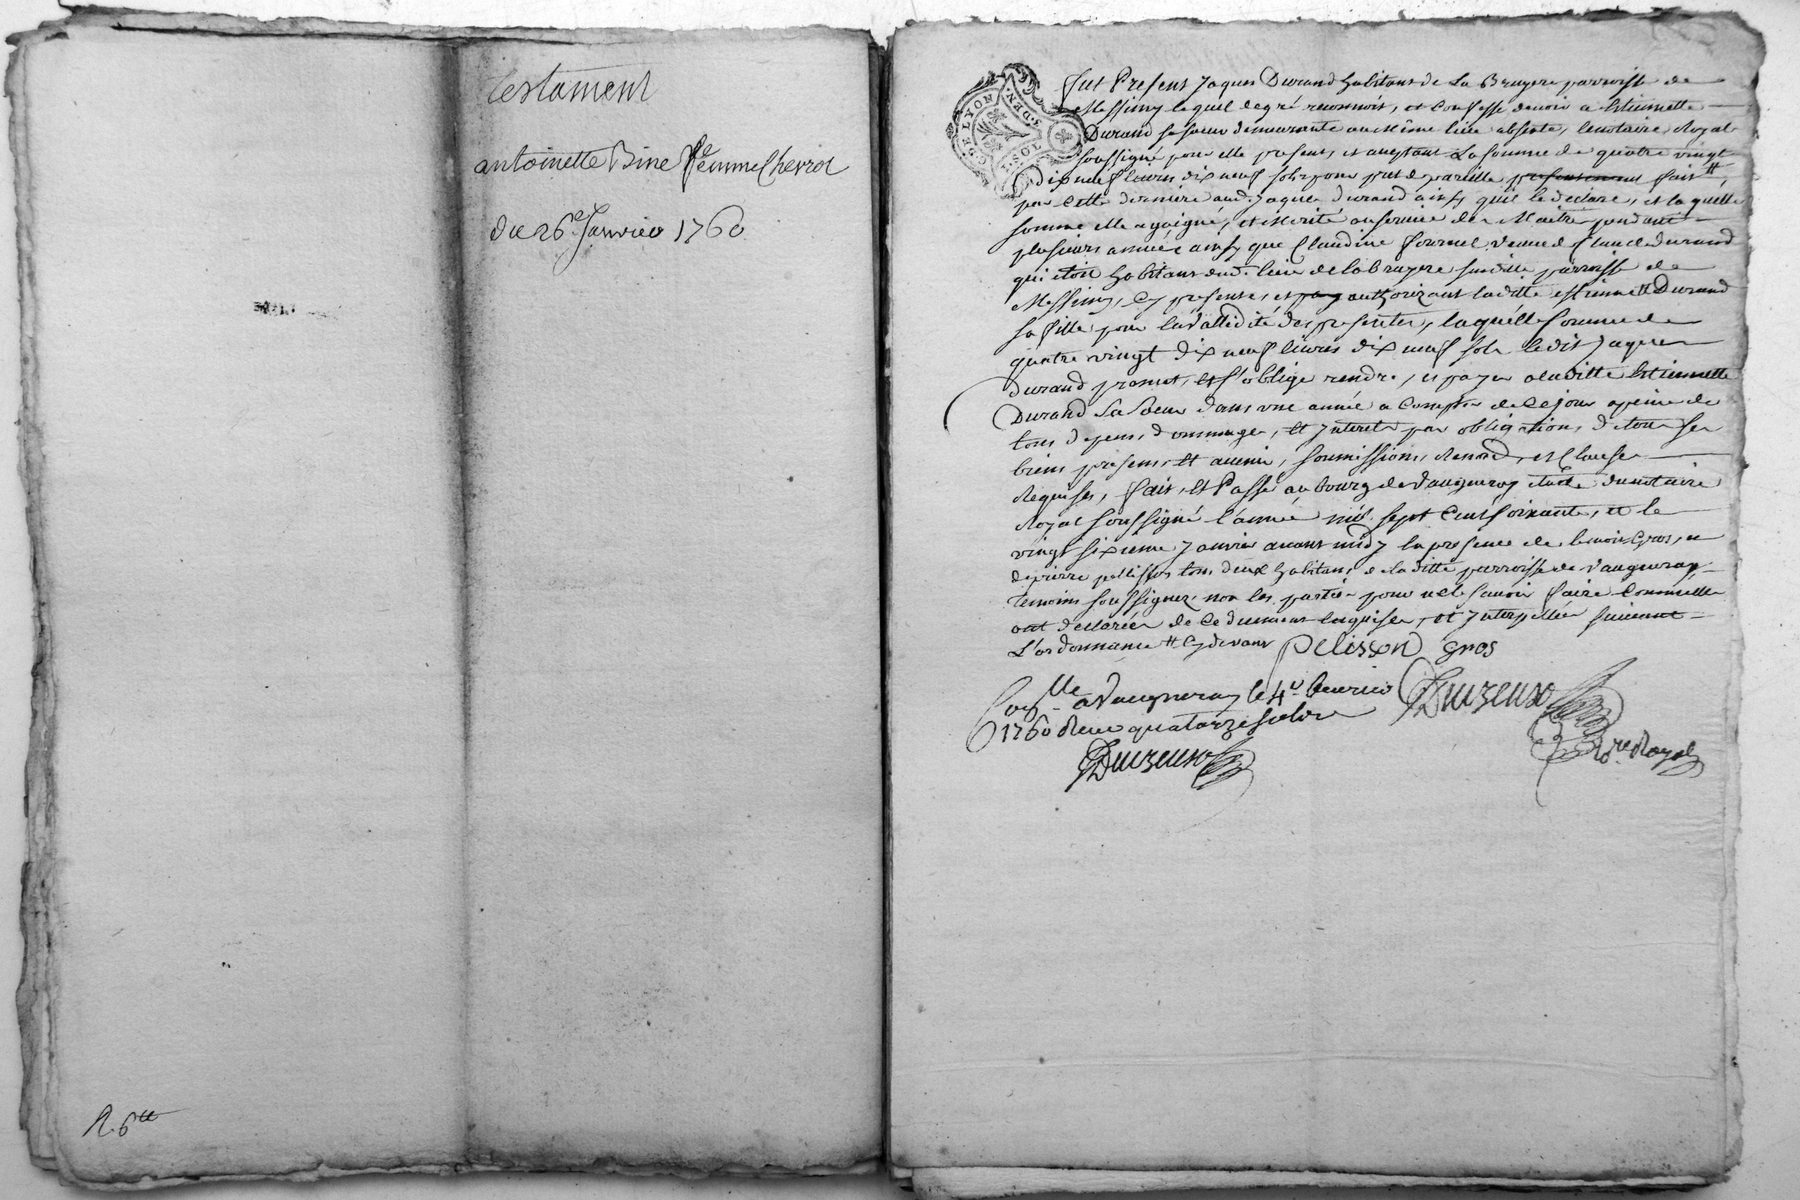 Testament
antoinette Bine femme Chevrot
du 26e Janvier 1760
R. 6tt
GEN. DE LYON
Fut Present Jaques Durand habitant de La Bruyere parroisse de
Messimy lequel de gré reconnoit, et Confesse devoir a Etiennette
Durand sa soeur demeurante au même lieu absente, le notaire Royal
soussigné pour elle present, et aceptant La somme de quatre vingt
dix neuf livres dix neuf sols pour pret de pareille fait
par Cette derniere aud. Jaques durand ainsy qu'il le declare, et laquelle
somme elle a gaigné, et merité au service de Maitre pendant
plusieurs années ainsy que Claudine fournel veuve de Claude durand
qui etoit habitant dud. lieu de la bruyere susditte parroisse de
Messimy, Cy presente, et authorizant laditte Etiennette Durand
sa fille pour la validité des presentes, laquelle somme de
quatre vingt dix neuf livres dix neuf sols ledit Jaques
Durand promet, et s'oblige rendre, et payer a laditte Etiennette
Durand Sa Soeur dans une année a Compter de Ce jour a peine de
tous depens, dommages, et Interets par obligation, de tous ses
biens presens, et avenir, soumissions, renonc., et Clauses
Requises, fait, et Passé au bourg de Vaugneray etude du notaire
Royal soussigné l'année mil sept Cent soixante, et le
vingt sixieme Janvier avant midy En presence de benoit Gros, et
de pierre pellisson tous deux habitans de laditte parroisse de Vaugneray
temoins soussignez non les parties pour ne le savoir faire Comme elles
ont declarées de Ce duement Enquises, et Interpellées suivant
L'ordonnance Cy devant Pelisson gros
Con.lle a Vaugneray le 4e fevrier
1760 Reçu quatorze sols
Duizeux
Duizeux
No.re Royal